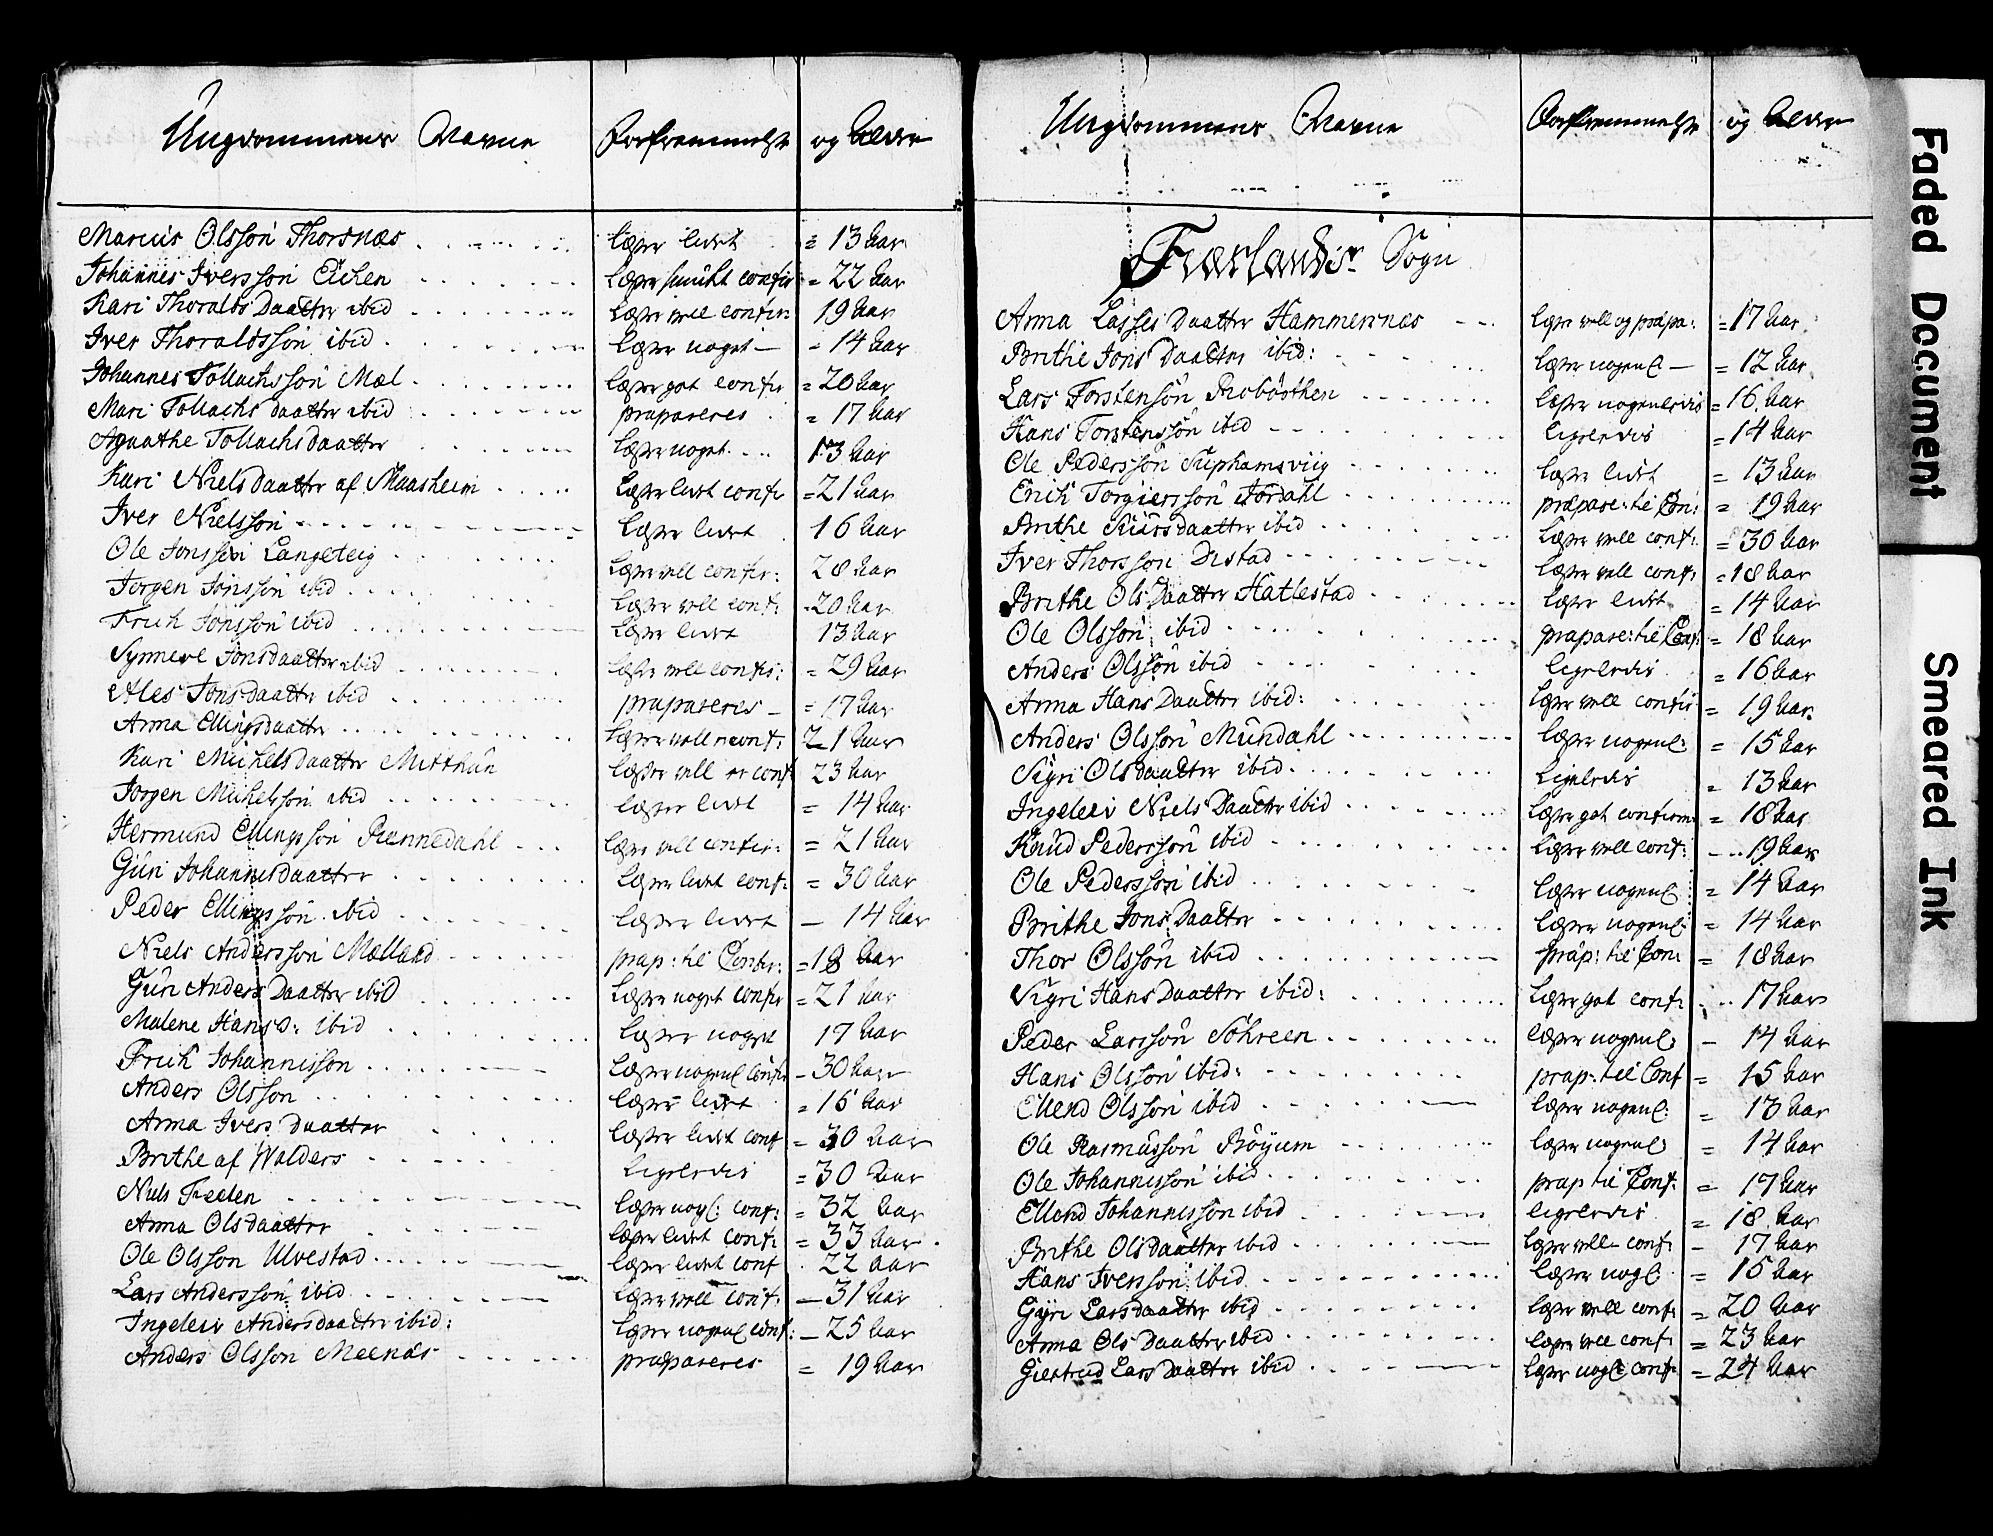 Ungdommens Navne Forfremmelse og Alder
Marcus Olssøn Thorsnæs læser lidet = 13 Aar
Johannes Iverssøn Eichen læser smukt confir = 22 Aar
Kari Thoralds Daatter ibid læser vell confir: 19 Aar
Iver Thoraldssøn ibid læser noget = 14 Aar
Johannes Tollachssøn Mæl læser got confir = 20 Aar
Mari Tollachs daatter ibid præpareres = 17 Aar
Agaathe Tollachsdaatter læser noget 13 Aar
Kari Nielsdaatter af Maasheim læser lidet confir = 21 Aar
Iver Nielssøn læser lidet 16 Aar
Ole Jonssøn Langeteig læser vell confir: 28 Aar
Jørgen Jonssøn ibid læser vell conf: 20 Aar
Erich Jonssøn ibid læser lidet 13 Aar
Synneve Jonsdaatter ibid læser vell confir: = 29 Aar
Ales Jonsdaatter ibid præpareres = 17 Aar
Anna Ellingsdaatter læser vell er conf: 21 Aar
Kari Michelsdaatter Mitthun læser vell er conf 23 Aar
Jørgen Michelssøn ibid læser lidet = 14 Aar
Hermund Ellingssøn Rennedahl læser vell confir: = 21 Aar
Guri Johannisdaatter læser lidet conf: = 30 Aar
Peder Ellingssøn ibid læser lidet — 14 Aar
Niels Anderssøn Mælland præp: til Confir: = 18 Aar
Guri Anders Daatter ibid læser noget confir = 21 Aar
Malene Hans D: ibid læser noget 17 Aar
Erich Johannissøn læser nogenl confir — 30 Aar
Anders Olssøn læser lidet = 16 Aar
Anna Ivers Daatter læser lidet conf = 30 Aar
Brithe af Walders ligeledis = 30 Aar
Niels Feelen læser nogl: conf: = 32 Aar
Anna Olsdaatter læser lidet conf: = 33 Aar
Ole Olssøn Ulvestad læser lidet conf 22 aar
Lars Anderssøn ibid læser vell conf: — 31 Aar
Ingeleiv Andersdaatter ibid: læser nogenl conf: — 25 Aar
Anders Olssøn Meenæs præpareres = 19 Aar
Ungdommens Navne Forfremmelse og Alder
Fiærlands Sogn
Anna Lasses Daatter Hammernæs læser vell og præpa: = 17 Aar
Brithe Jons Daatter ibid: læser nogenl — = 12 Aar
Lars Torstensøn læser nogenledis = 16 Aar
Hans Torstenssøn ibid ligeledis = 14 Aar
Ole Pederssøn Suphamsviig læser lidet = 13 Aar
Erich Torgierssøn Jordahl præpare: til Con: = 19 Aar
Brithe Siursdaatter ibid læser vell conf: = 30 Aar
Iver Thorssøn Distad læser vell conf: = 18 Aar
Brithe Ols Daatter Hatlestad læser lidet = 14 Aar
Ole Olssøn ibid præpare: til Con: = 18 Aar
Anders Olssøn ibid ligeledis = 16 Aar
Anna Hans Daatter ibid: læser vell confir = 19 Aar
Anders Olssøn Mundahl læser nogenl: = 15 Aar
Sigri Olsdaatter ibid ligeledis = 13 Aar
Ingeleiv Niels Daatter ibid læser got confirm = 18 Aar
Knud Pederssøn ibid læser vell conf: 19 Aar
Ole Pederssøn ibid læser nogenl = 14 Aar
Brithe Jons Daatter læser nogenl = 14 Aar
Thor Olssøn ibid præp: til Con: = 18 Aar
Sigri Hans Daatter ibid: læser got conf: 17 Aar
Peder Larssøn læser nogenl: — 14 Aar
Hans Olssøn ibid: præp: til Conf = 15 Aar
Ellend Olssøn ibid læser nogenl: = 13 Aar
Ole Rasmussøn Bøyum læser nogenl = 14 Aar
Ole Johannissøn ibid præp til Conf: = 17 Aar
Ellend Johannissøn ibid ligeledis = 18 Aar
Brithe Olsdaatter ibid læser vell conf: — 17 Aar
Hans Iverssøn ibid læser nogl = 15 Aar
Guri Larsdaatter ibid læser vell conf: = 20 Aar
Anna Ols Daatter ibid læser vell conf: = 23 Aar
Giertrud Lars Daatter ibid læser nogl: conf: = 24 Aar
Faded Document
Smeared Ink